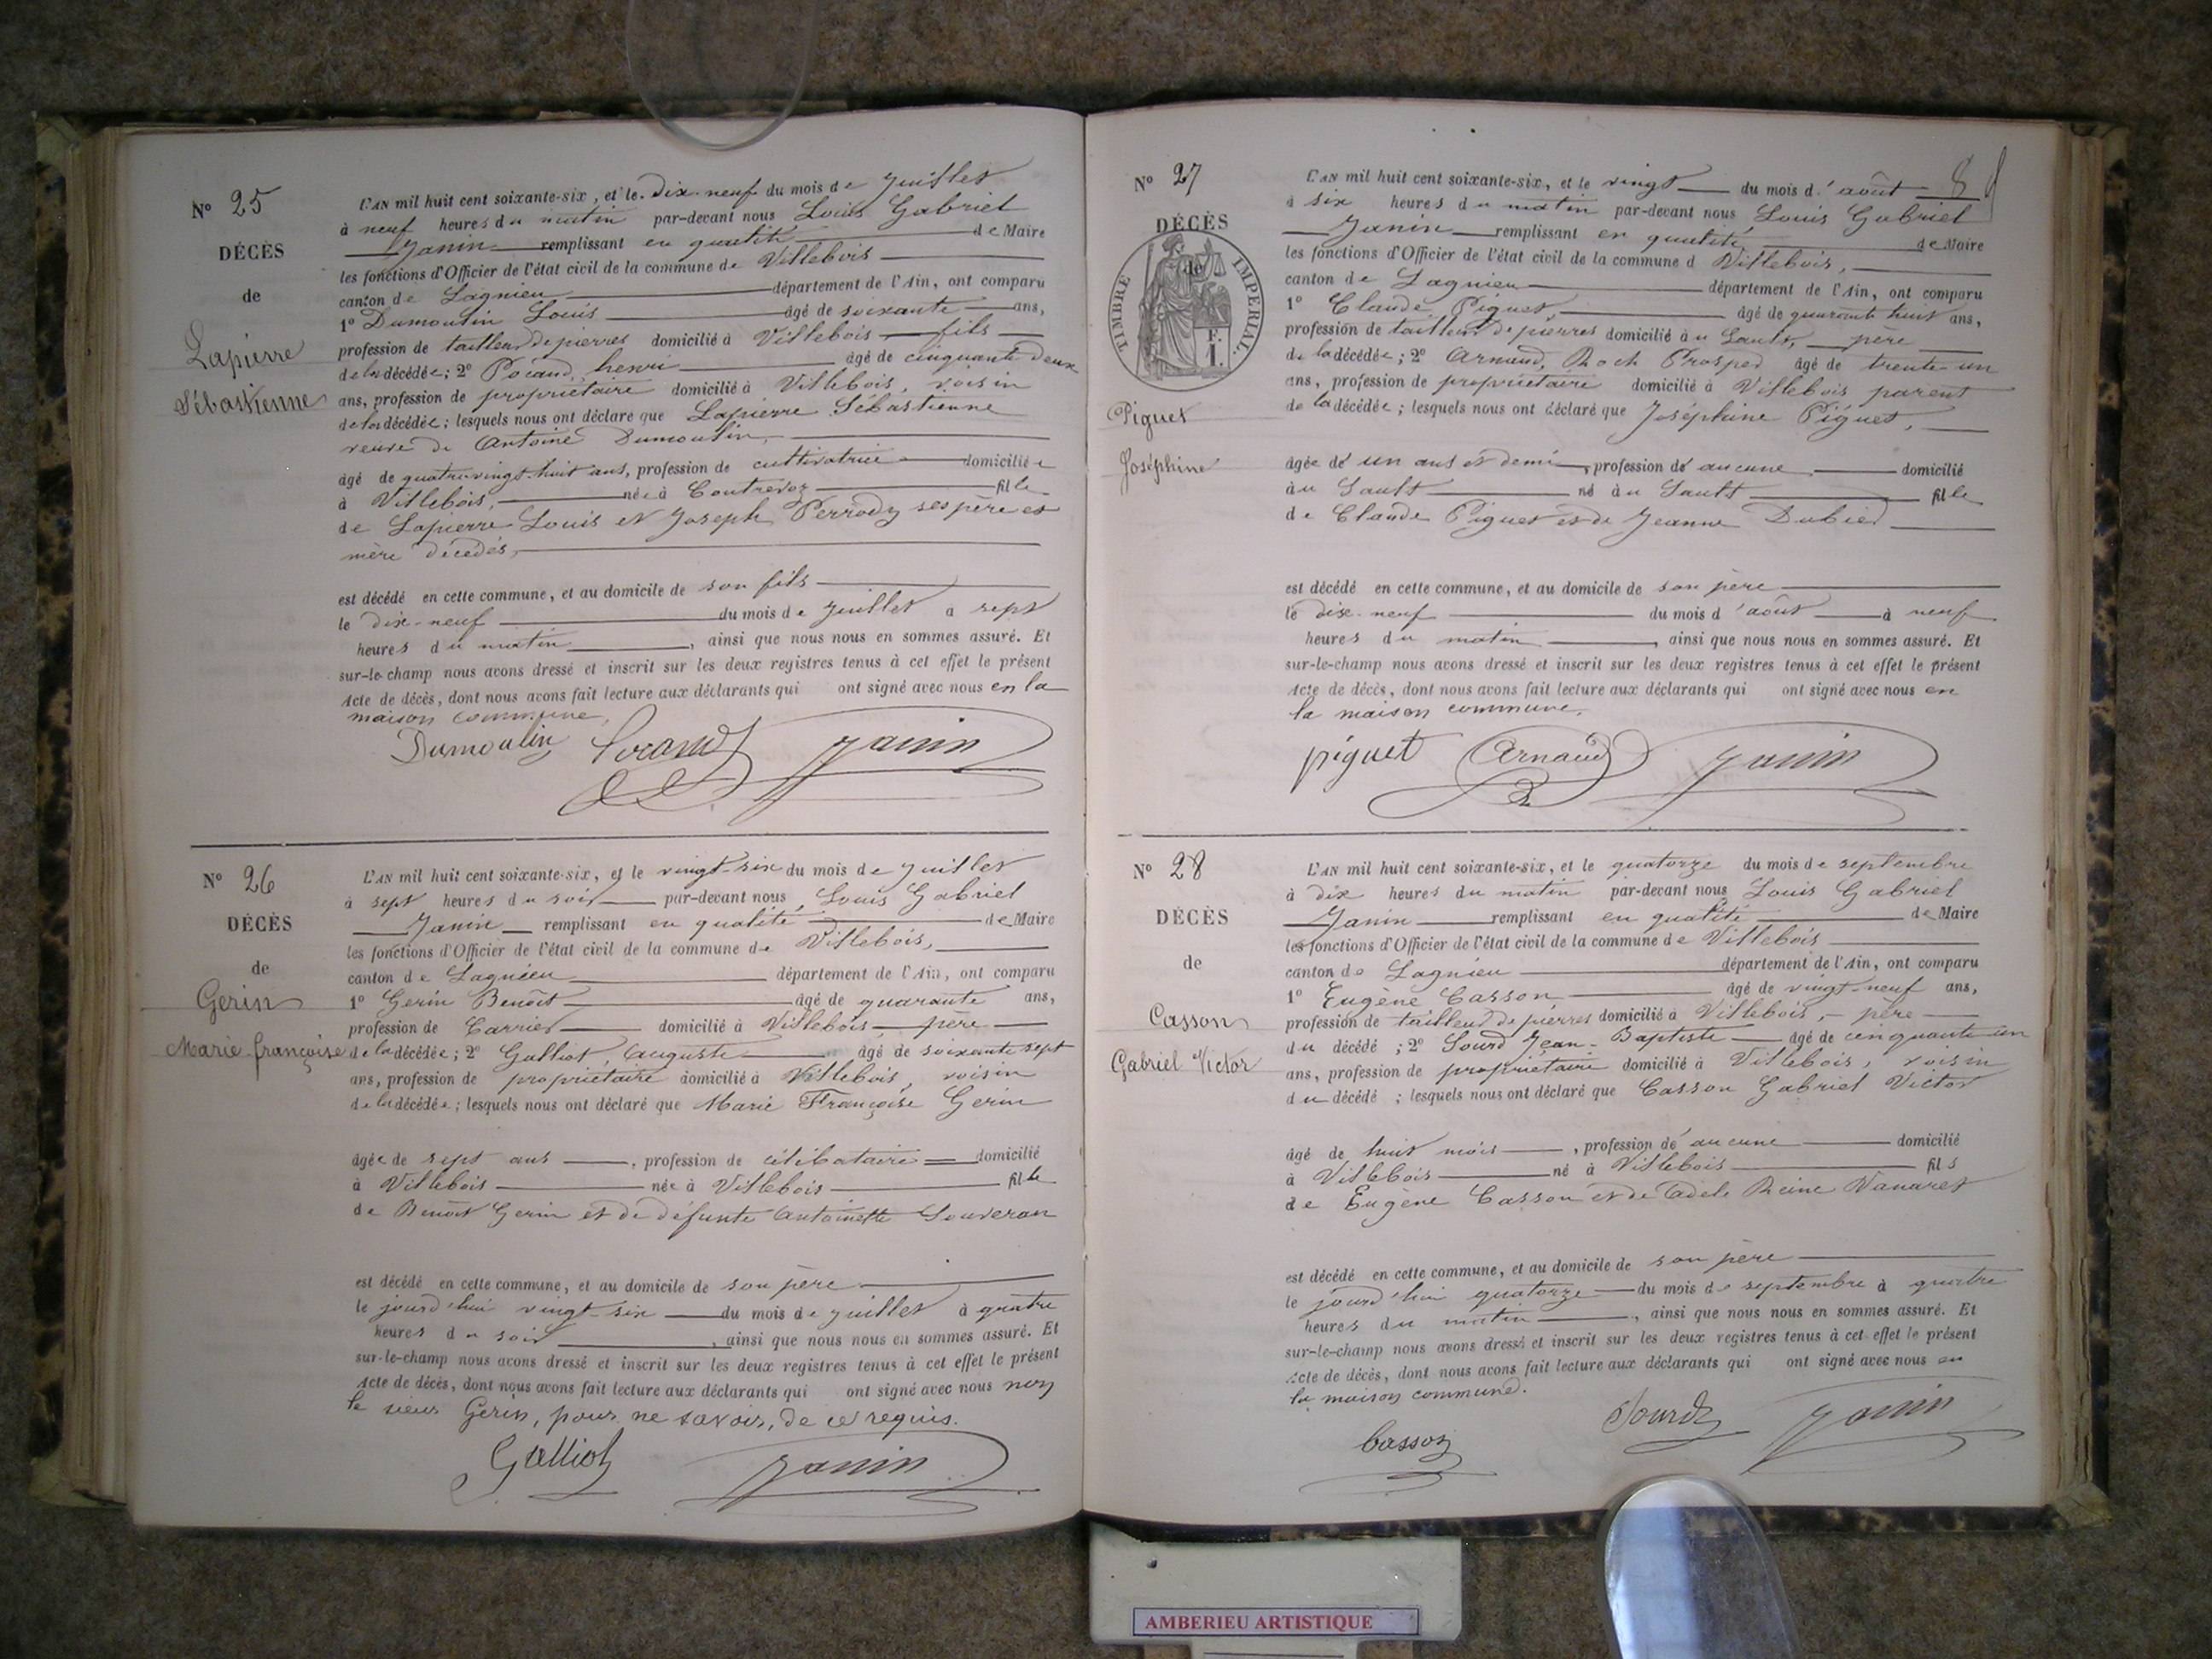 N° 25
DÉCÈS
de
Lapierre
Sébastienne
L'AN mil huit cent soixante-six, et le dix-neuf du mois de Juillet
à neuf heures du matin par-devant nous Louis Gabriel
Janin remplissant en qualité de Maire
les fonctions d'Officier de l'état civil de la commune de Villebois
canton de Lagnieu département de l'Ain, ont comparu
1° Dumoulin Louis âgé de soixante ans,
profession de tailleur de pierres domicilié à Villebois fils
de la décédée; 2° Pocand henri âgé de cinquante deux
ans, profession de propriétaire domicilié à Villebois, voisin
de la décédée; lesquels nous ont déclaré que Lapierre Sébastienne
veuve de Antoine Dumoulin,
âgé de quatre-vingt-huit ans, profession de cultivatrice domiciliée
à Villebois, née à Contrevoz fille
de Lapierre Louis et Joseph Perrody ses père et
mère décédés,
est décédé en cette commune, et au domicile de son fils
le dix-neuf du mois de Juillet à sept
heures du matin, ainsi que nous nous en sommes assuré. Et
sur-le-champ nous avons dressé et inscrit sur les deux registres tenus à cet effet le présent
Acte de décès, dont nous avons fait lecture aux déclarants qui ont signé avec nous en la
maison commune,
Dumoulin Pocand Janin
N° 26
DÉCÈS
de
Gerin
Marie françoise
L'AN mil huit cent soixante-six, et le vingt-six du mois de Juillet
à sept heures du soir par-devant nous, Louis Gabriel
Janin remplissant en qualité de Maire
les fonctions d'Officier de l'état civil de la commune de Villebois,
canton de Lagnieu département de l'Ain, ont comparu
1° Gerin Benoît âgé de quarante ans,
profession de Carrier domicilié à Villebois père
de la décédée; 2° Galliot, Auguste âgé de soixante sept
ans, profession de propriétaire domicilié à Villebois, voisin
de la décédée; lesquels nous ont déclaré que Marie Françoise Gerin
âgée de sept ans, profession de célibataire domicilié
à Villebois née à Villebois fille
de Benoît Gerin et de défunte Antoinette Souveran
est décédé en cette commune, et au domicile de son père
le jourd'hui vingt-six du mois de Juillet à quatre
heures du soir, ainsi que nous nous en sommes assuré. Et
sur-le-champ nous avons dressé et inscrit sur les deux registres tenus à cet effet le présent
Acte de décès, dont nous avons fait lecture aux déclarants qui ont signé avec nous non
le sieur Gerin, pour ne savoir, de ce requis.
Galliot Janin
8
N° 27
DÉCÈS
de
TIMBRE IMPERIAL.
F.
1.
Piguet
Joséphine
L'AN mil huit cent soixante-six, et le vingt du mois d'août
à six heures du matin par-devant nous, Louis Gabriel
Janin remplissant en qualité de Maire
les fonctions d'Officier de l'état civil de la commune d Villebois,
canton de Lagnieu département de l'Ain, ont comparu
1° Claude Piguet, âgé de quarante huit ans,
profession de tailleur de pierres domicilié à u Sault, père
de la décédée; 2° Arnaud, Roch Prosper âgé de trente-un
ans, profession de propriétaire domicilié à Villebois parent
de la décédée; lesquels nous ont déclaré que Joséphine Piguet,
âgée de un ans et demi, profession d'aucune domicilié
à u Sault né à u Sault fille
de Claude Piguet et de Jeanne Dubied
est décédé en cette commune, et au domicile de son père
le dix-neuf du mois d'août à neuf
heures du matin, ainsi que nous nous en sommes assuré. Et
sur-le-champ nous avons dressé et inscrit sur les deux registres tenus à cet effet le présent
Acte de décès, dont nous avons fait lecture aux déclarants qui ont signé avec nous en
la maison commune.
piguet Arnaud Janin
N° 28
DÉCÈS
de
Casson
Gabriel Victor
L'AN mil huit cent soixante-six, et le quatorze du mois de septembre
à dix heures du matin par-devant nous Louis Gabriel
Janin remplissant en qualité de Maire
les fonctions d'Officier de l'état civil de la commune de Villebois
canton de Lagnieu département de l'Ain, ont comparu
1° Eugène Casson âgé de vingt-neuf ans,
profession de tailleur de pierres domicilié à Villebois, père
du décédé; 2° Sourd Jean-Baptiste âgé de cinquante-un
ans, profession de propriétaire domicilié à Villebois, voisin
du décédé; lesquels nous ont déclaré que Casson Gabriel Victor
âgé de huit mois, profession d'aucune domicilié
à Villebois né à Villebois fils
de Eugène Casson et de Adèle Reine Vanaret
est décédé en cette commune, et au domicile de son père
le jourd'hui quatorze du mois de septembre à quatre
heures du matin, ainsi que nous nous en sommes assuré. Et
sur-le-champ nous avons dressé et inscrit sur les deux registres tenus à cet effet le présent
Acte de décès, dont nous avons fait lecture aux déclarants qui ont signé avec nous en
la maison commune.
Casson Sourd Janin
AMBERIEU ARTISTIQUE